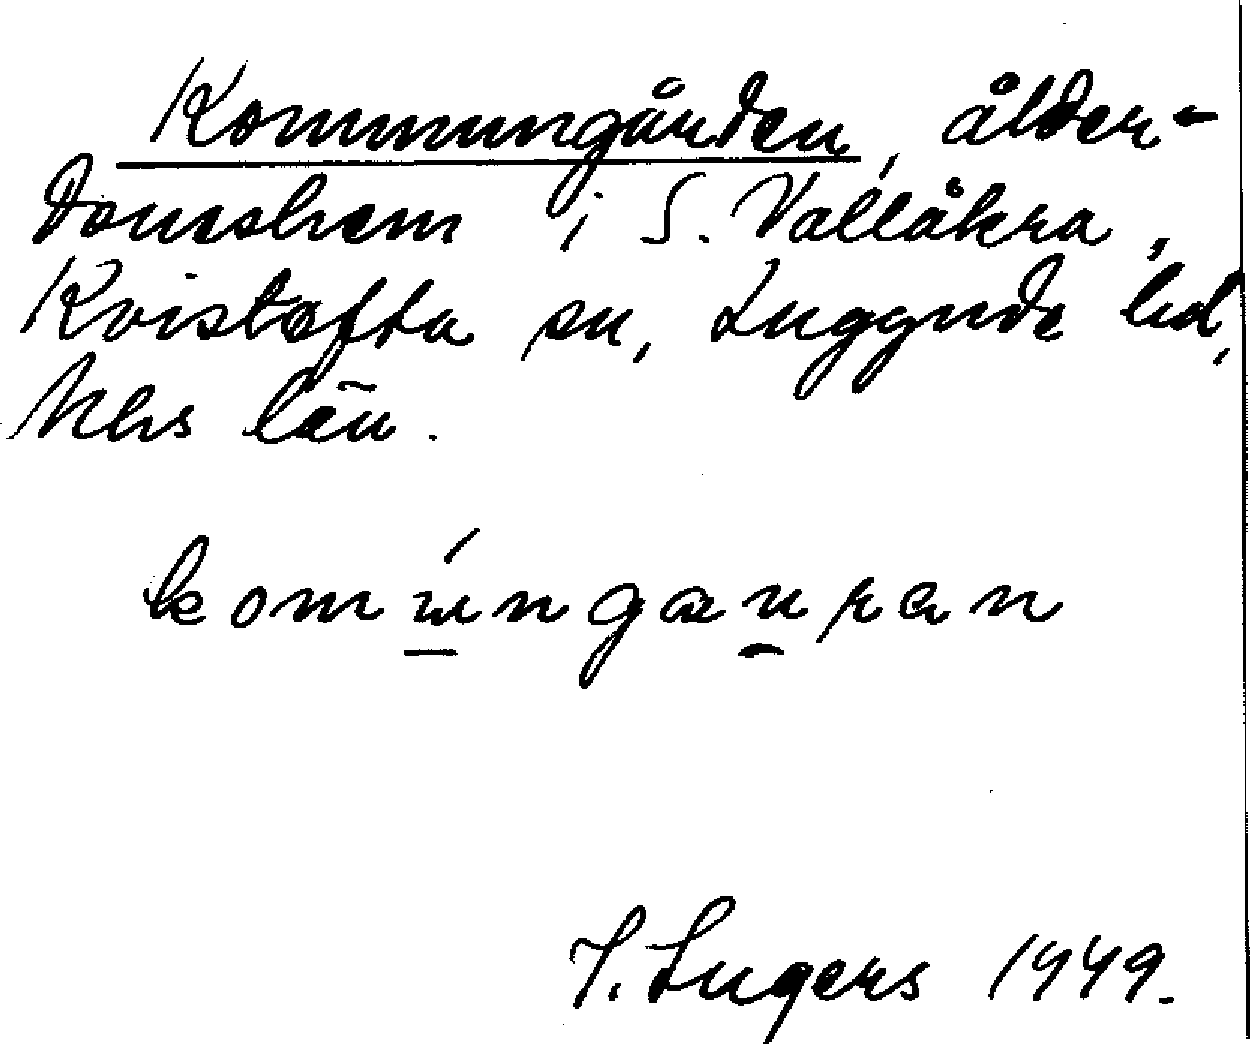 Kommungården, ålder-
domshem i S. Vallåkra,
Kvistofta sn, Luggude hd,
Mhs län.
komúngauran
I. Ingers 1949.